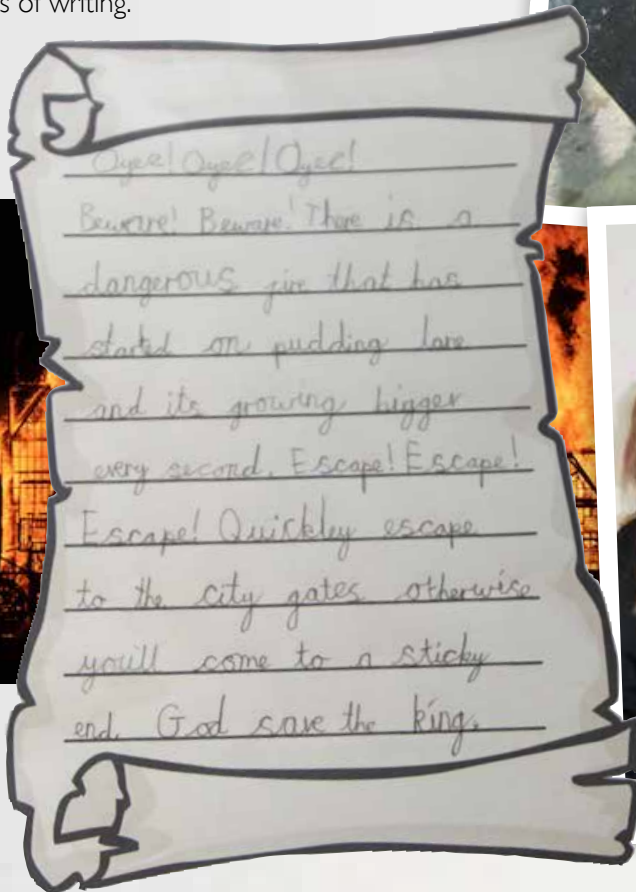 s of writing.
Oyee! Oyee! Oyee!
Beware! Beware! There is a
dangerous fire that has
started on pudding lane
and its growing bigger
every second. Escape! Escape!
Escape! Quickley escape
to the city gates otherwise
you'll come to a sticky
end. God save the king.